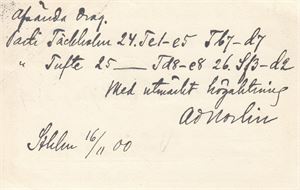 Afsända drag.
Parti Täckholm 24. Te1-e5 Tb7-d7
" Tufte 25 — Td8-e8 26. Sf3-d2
Med utmärkt högaktning
AdNorlin
Sthlm 16/11 00